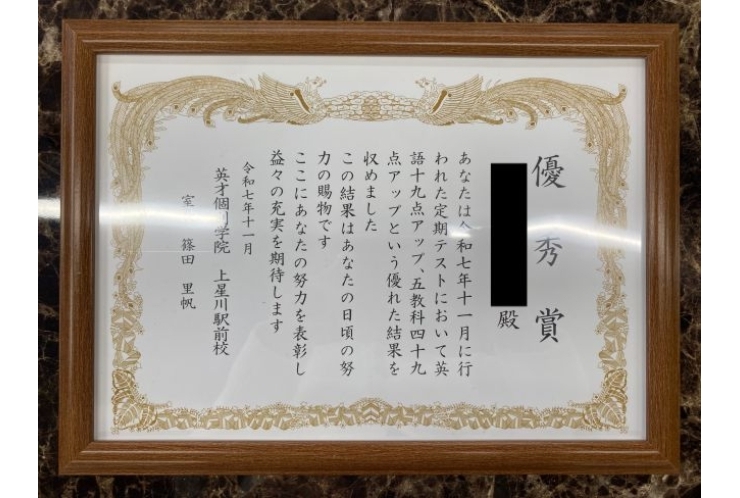 優秀賞
殿
あなたは令和七年十一月に行
われた定期テストにおいて英
語十九点アップ、五教科四十九
点アップという優れた結果を
収めました
この結果はあなたの日頃の努
力の賜物です
ここにあなたの努力を表彰し
益々の充実を期待します
令和七年十一月
英才個別学院 上星川駅前校
室 篠田 里帆